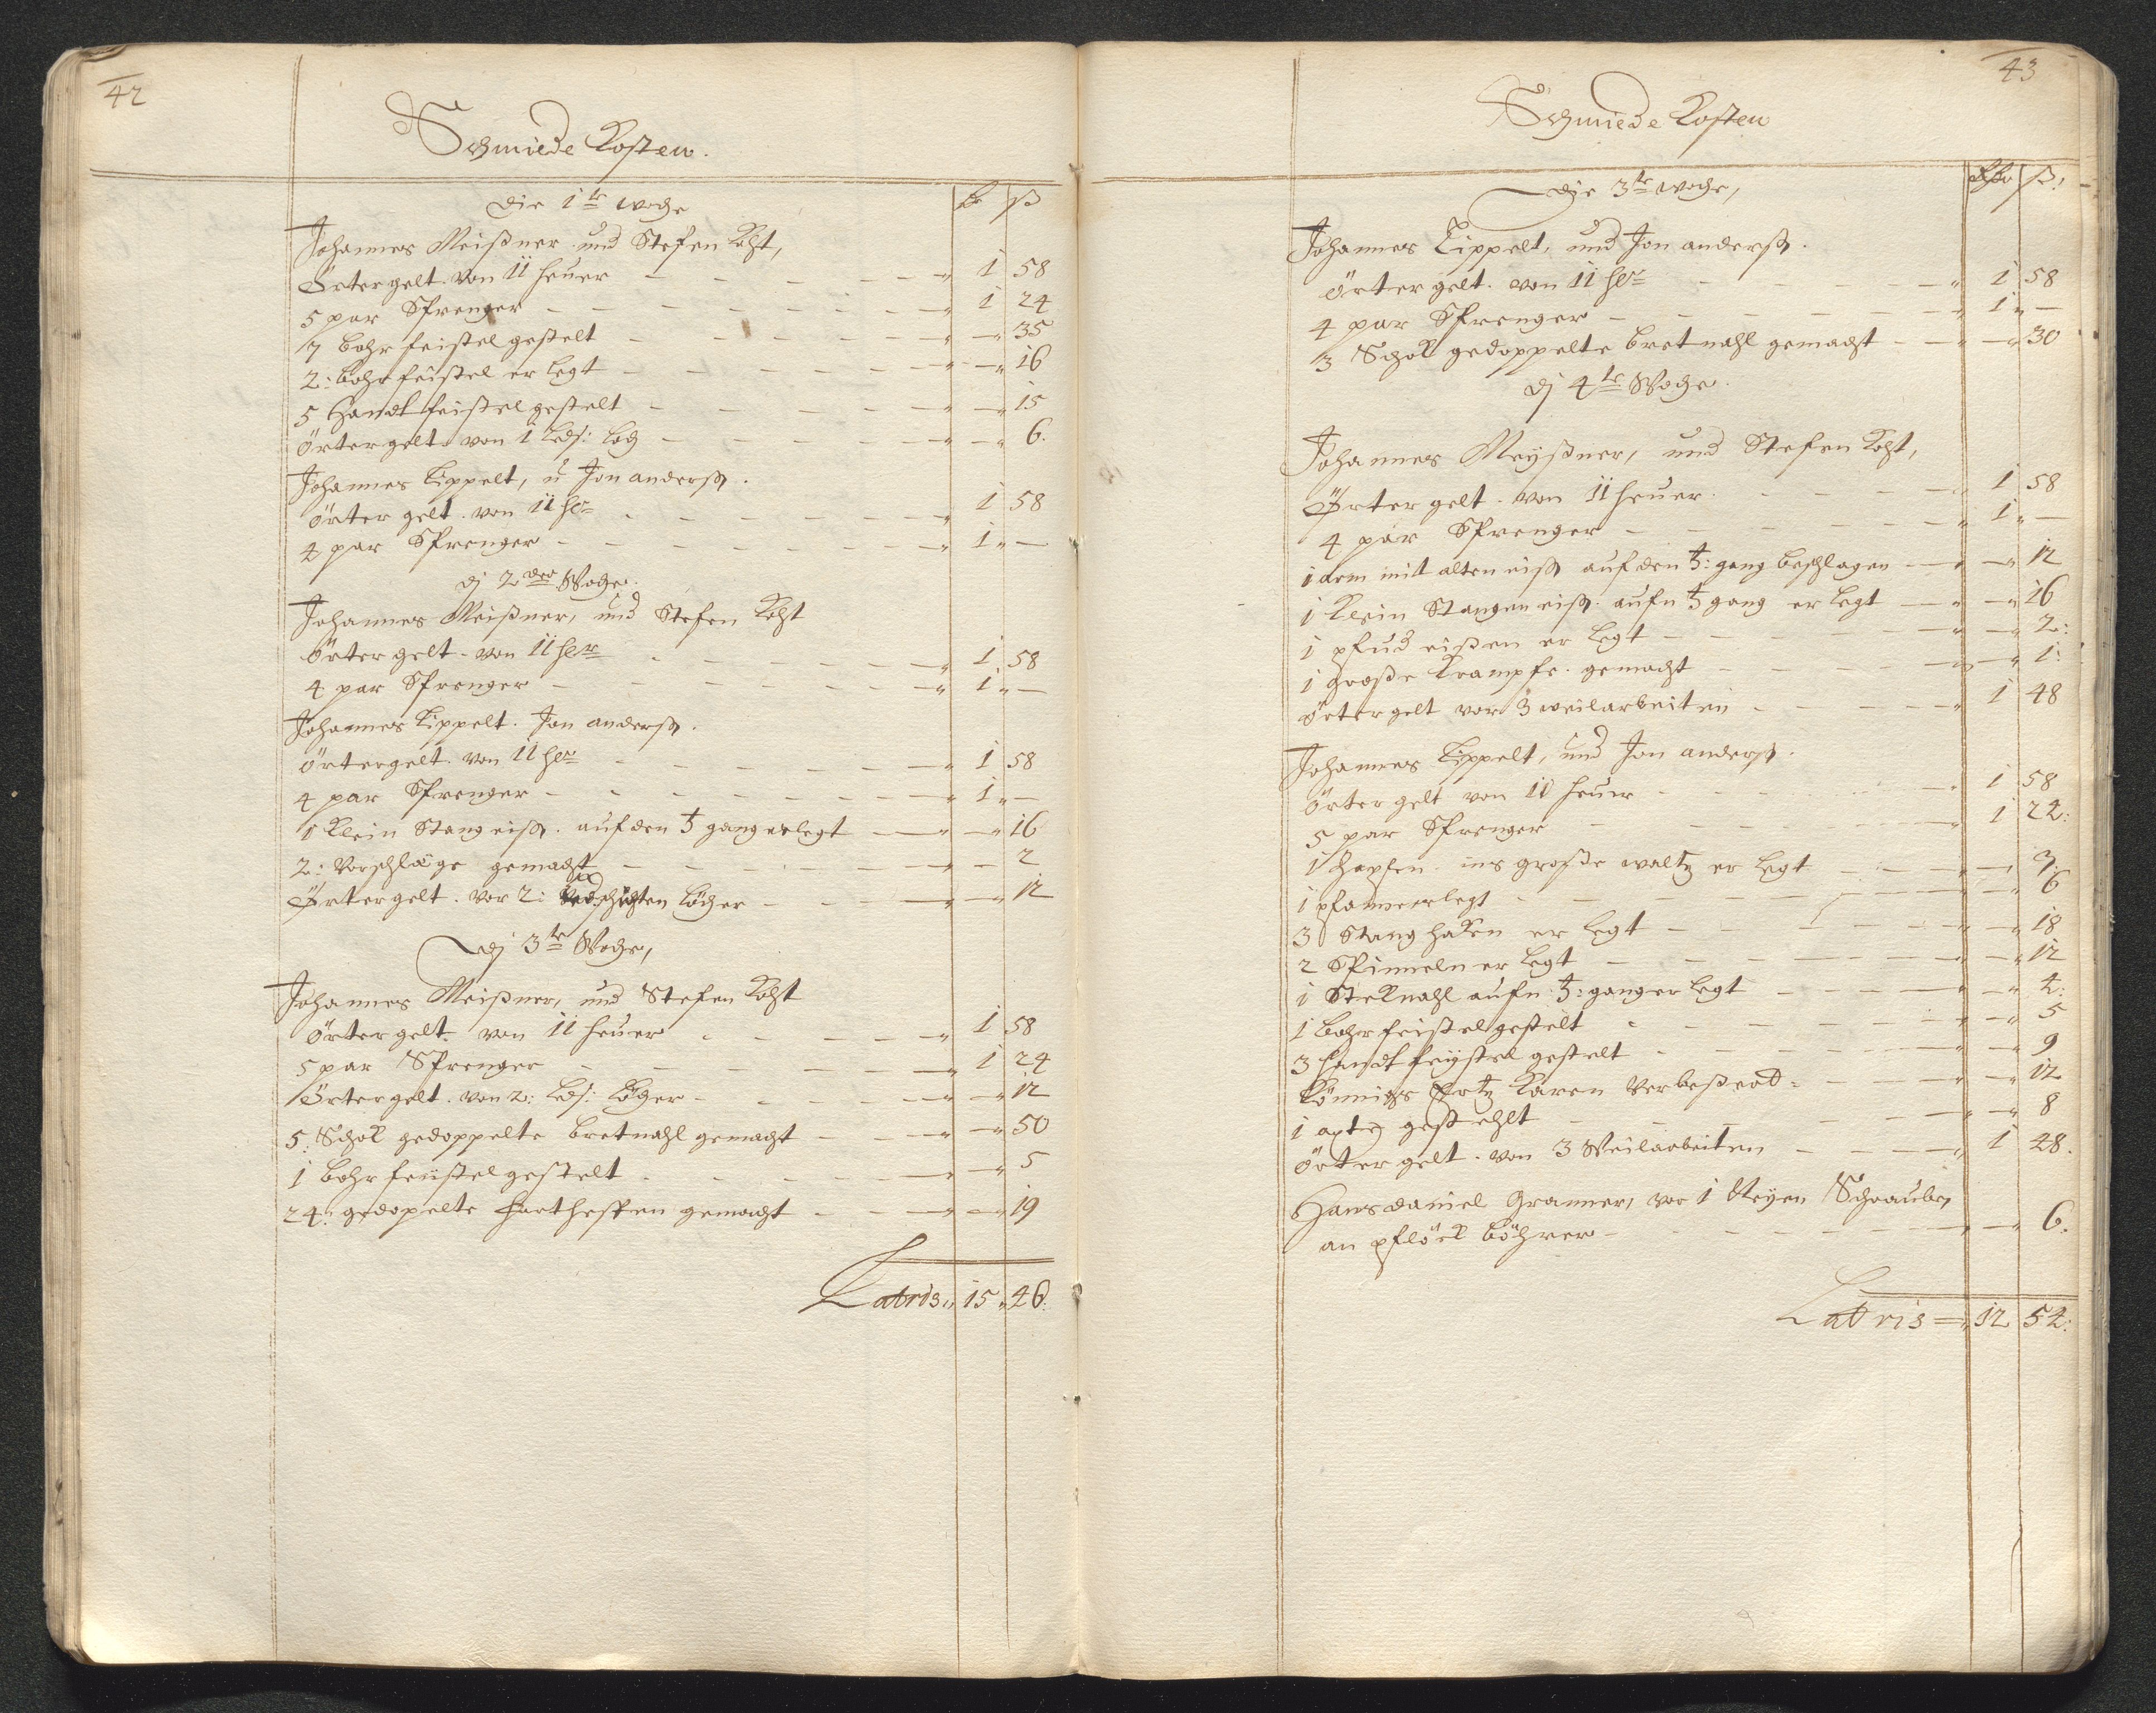 42
Schmiede Kosten.
Die 1te woche
Johannes Meißner und Stefen Koht,
Örtergelt. von 11 heuer 1 58
5 par Sprenger 1 24
7 bohr feistel gestelt — 35
2: bohr feistel er legt — 16
5 Handt feistel gestelt — 15
örtergelt. von 1 loch — 6.
Johannes Lippelt, ü Jon anderß.
örter gelt. von 11 hlr 1 58
4 par Sprenger 1 —
dj 2der Woche.
Johannes Meißner, und Stefen Koht
örter gelt. von 11 hlr 1 58
4 par Sprenger 1 —
Johannes Lippelt. Jon anderß.
örtergelt. von 11 hlr 1 58
4 par Sprenger 1 —
1 klein Stang eiß. auf den gang erlegt — 16
2: Vorschläge gemacht — 2
Örtergelt. vor 2: löcher — 12
dj 3te Woche,
Johannes Meißner, und Stefen Koht
örter gelt. von 11 heuer 1 58
5 par Sprenger 1 24
Örtergelt. von 2: löcher — 12
5: Schok gedoppelte bretnahl gemacht — 50
1 bohr feustel gestelt — 5
24: gedopelte gemacht — 19
Latris 15 46:
43
Schmiede Kosten
Die 3te woche,
Johannes Lippelt, und Jon anderß.
örter gelt. von 11 hlr 1 58
4 par Sprenger 1 —
3 Schok gedoppelte bretnahl gemacht — 30
dj 4te Woche.
Johannes Meyßner, und Stefen Koht,
Örter gelt. von 11 heuer. 1 58
4 par Sprenger 1 —
1 arm mit alten eiß auf den gang beschlagen — 12
1 klein Stangen eiß. aufn gang er legt — 16
1 pfud eißen er legt — 2:
1 große krampfe. gemacht — 1:
örtergelt vor 3 weilarbeiten 1 48
Johannes Lippelt, und Jon anderß.
örter gelt von 11 heuer 1 58
5 par Sprenger 1 24:
1 Zapfen. ins große waltz er legt — 3:
1 pfanne erlegt — 6
3 Stang haken er legt — 18
2 Spinneln er legt — 12
1 Steknahl aufn gang er legt — 4:
1 bohr feistel gestelt — 5
3 handt feystel gestelt — 9
Könnigs Ertz karen verbeßert — 12
1 axt gestehlt — 8
örter gelt. von 3 Weilarbeiten 1 48.
Hans daniel Granner, vor 1 Neyen Schraube,
an pflöck böhrer — 6.
Latris 12 54: